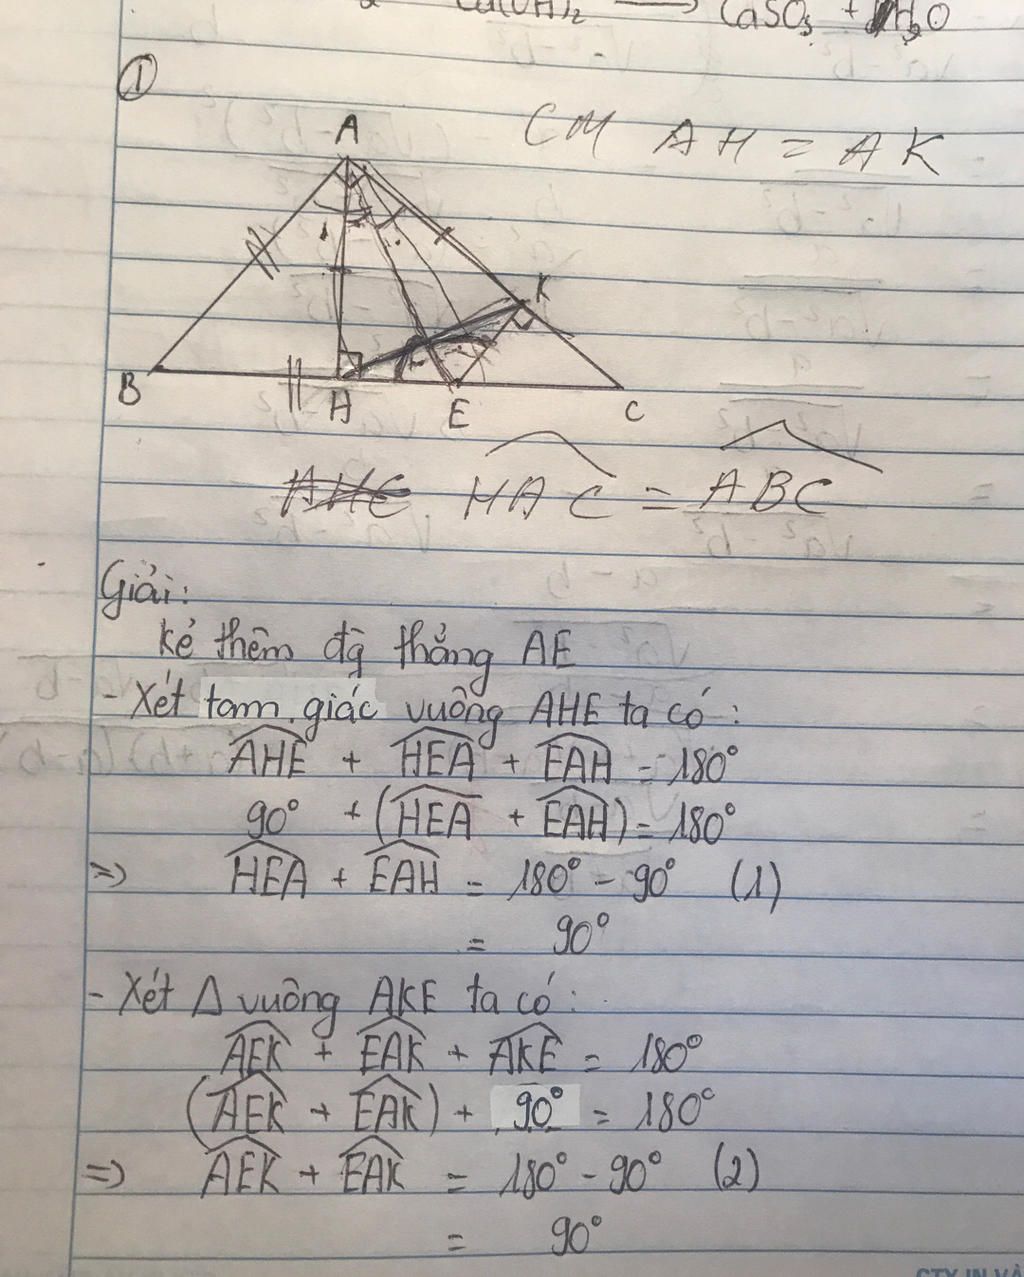 Ca(OH)₂ ⟶ CaSO₃ + H₂O
①
CM AH = AK
A
K
B
H
E
C
HAC = ABC
Giải:
kẻ thêm đg thẳng AE
- Xét tam giác vuông AHE ta có:
AHE + HEA + EAH = 180°
90° + (HEA + EAH) = 180°
=> HEA + EAH = 180° - 90° (1)
= 90°
- Xét Δ vuông AKE ta có:
AEK + EAK + AKE = 180°
(AEK + EAK) + 90° = 180°
=> AEK + EAK = 180° - 90° (2)
= 90°
CTY IN VÀ